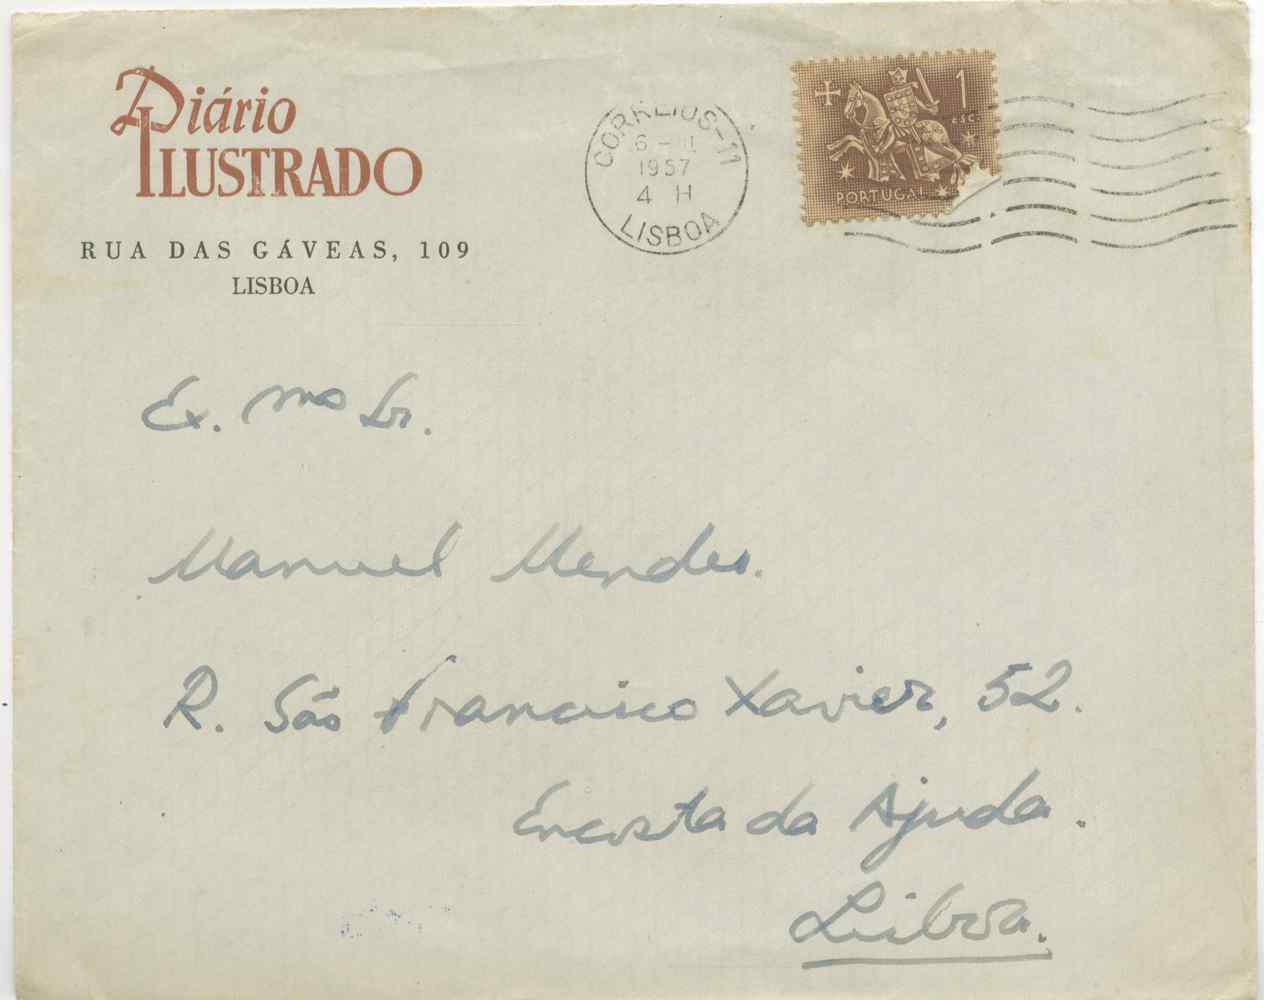 Diário
ILUSTRADO
RUA DAS GÁVEAS, 109
LISBOA
CORREIOS-11
6-III
1957
4 H
LISBOA
1
ESC.
PORTUGAL
Ex.mo Sr.
Manuel Mendes.
R. São Francisco Xavier, 52.
Encosta da Ajuda.
Lisboa.